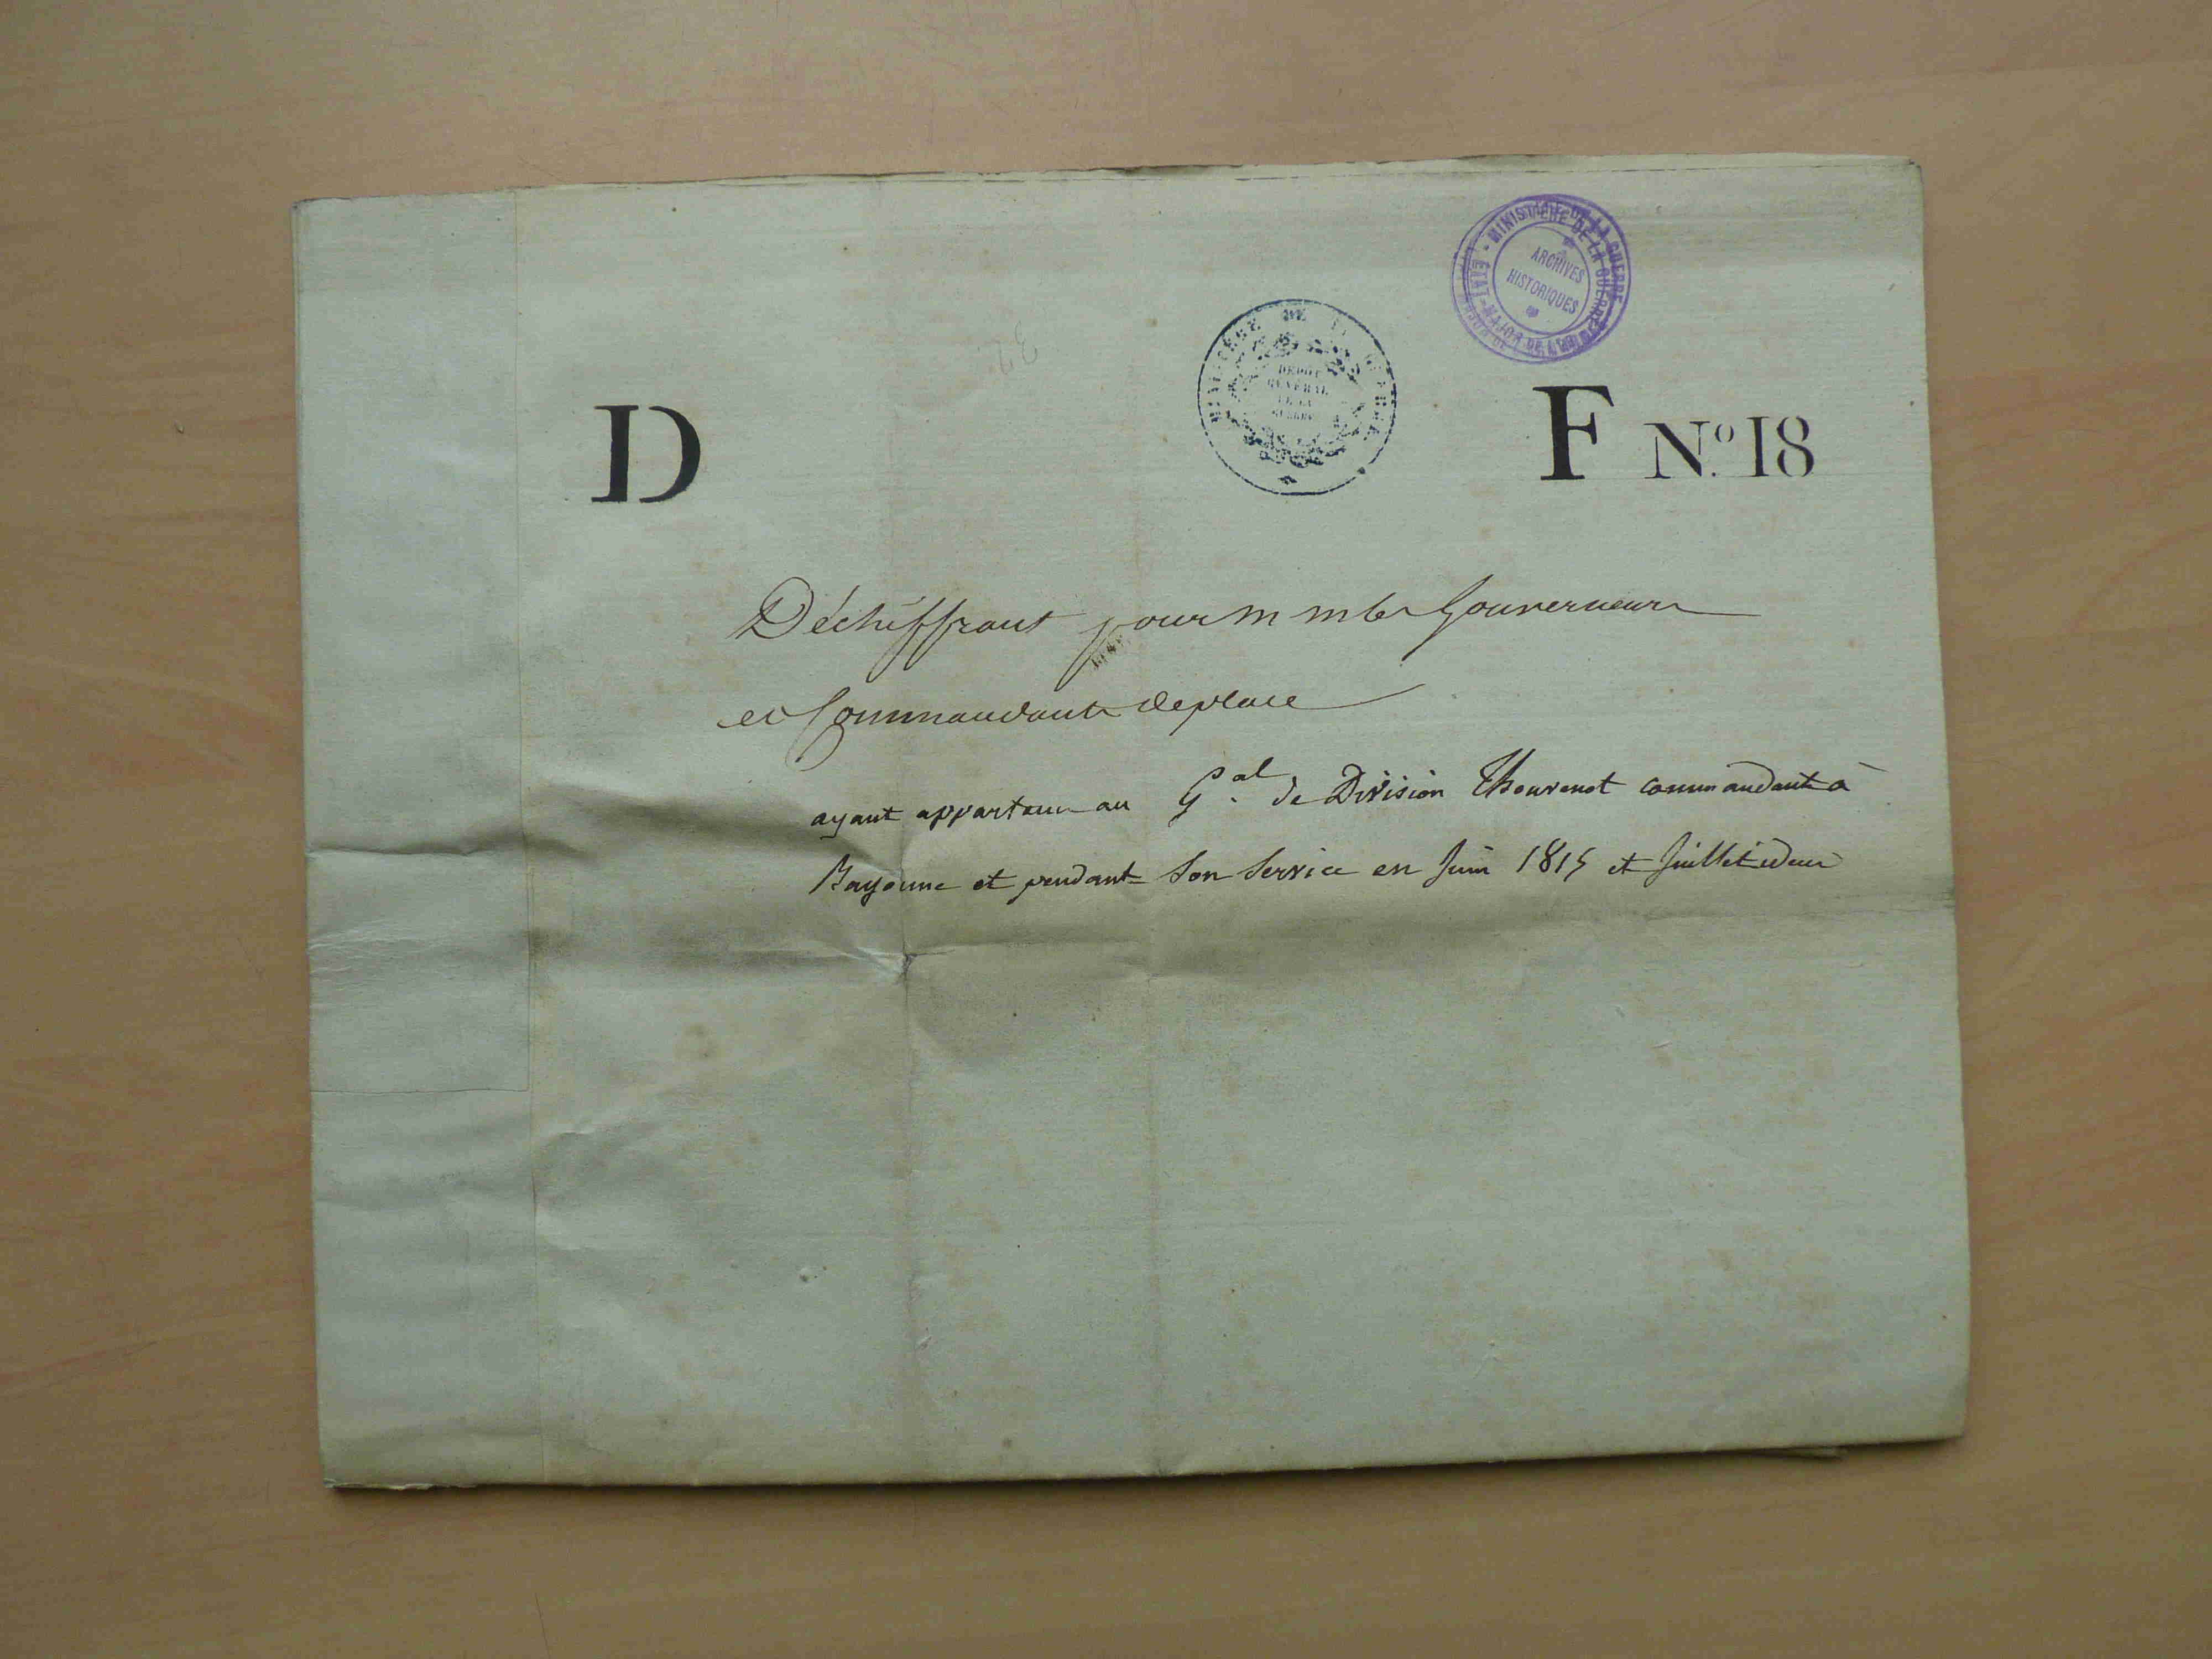 MINISTÈRE DE LA GUERRE
ETAT-MAJOR DE L'ARMÉE
ARCHIVES
HISTORIQUES
MINISTÈRE DE LA GUERRE
DÉPÔT
GÉNÉRAL
DE LA
GUERRE
D
F N.º 18
Déchiffrant pour M M les Gouverneurs
et Commandants de place
ayant appartenu au G.al de Division Thouvenot commandant à
Bayonne et pendant son service en Juin 1815 et Juillet idem